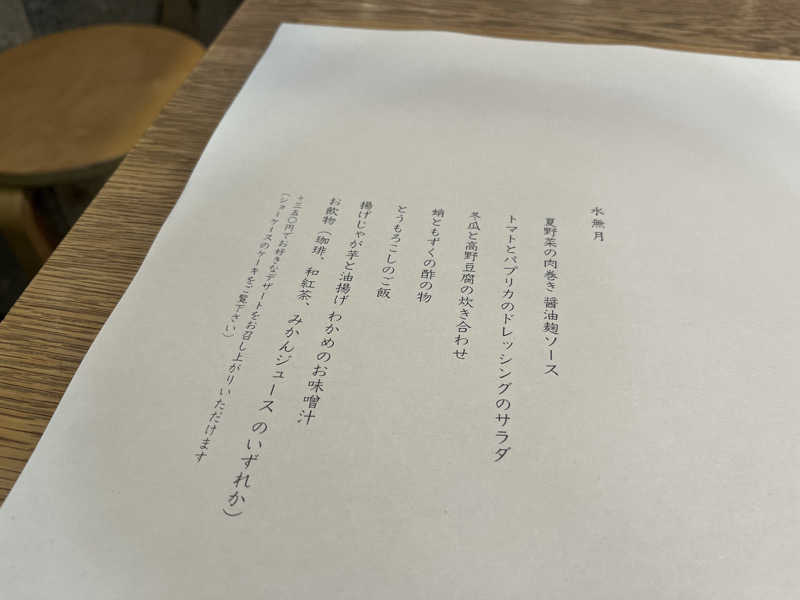 水無月
夏野菜の肉巻き 醤油麹ソース
トマトとパプリカのドレッシングのサラダ
冬瓜と高野豆腐の炊き合わせ
蛸ともずくの酢の物
とうもろこしのご飯
揚げじゃが芋と油揚げ わかめのお味噌汁
お飲物（珈琲、和紅茶、みかんジュース のいずれか）
+三五〇円でお好きなデザートをお召し上がりいただけます
（ショーケースのケーキをご覧下さい）